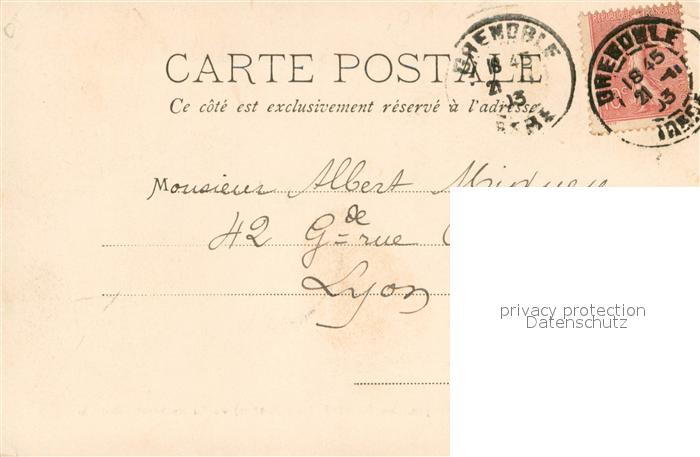 CARTE POSTALE
Ce côté est exclusivement réservé à l'adresse
GRENOBLE
18 45
21
03
ISERE
REPUBLIQUE FRANÇAISE
GRENOBLE
18 45
21
03
ISERE
Monsieur Albert
42 Gde rue
Lyon
privacy protection
Datenschutz